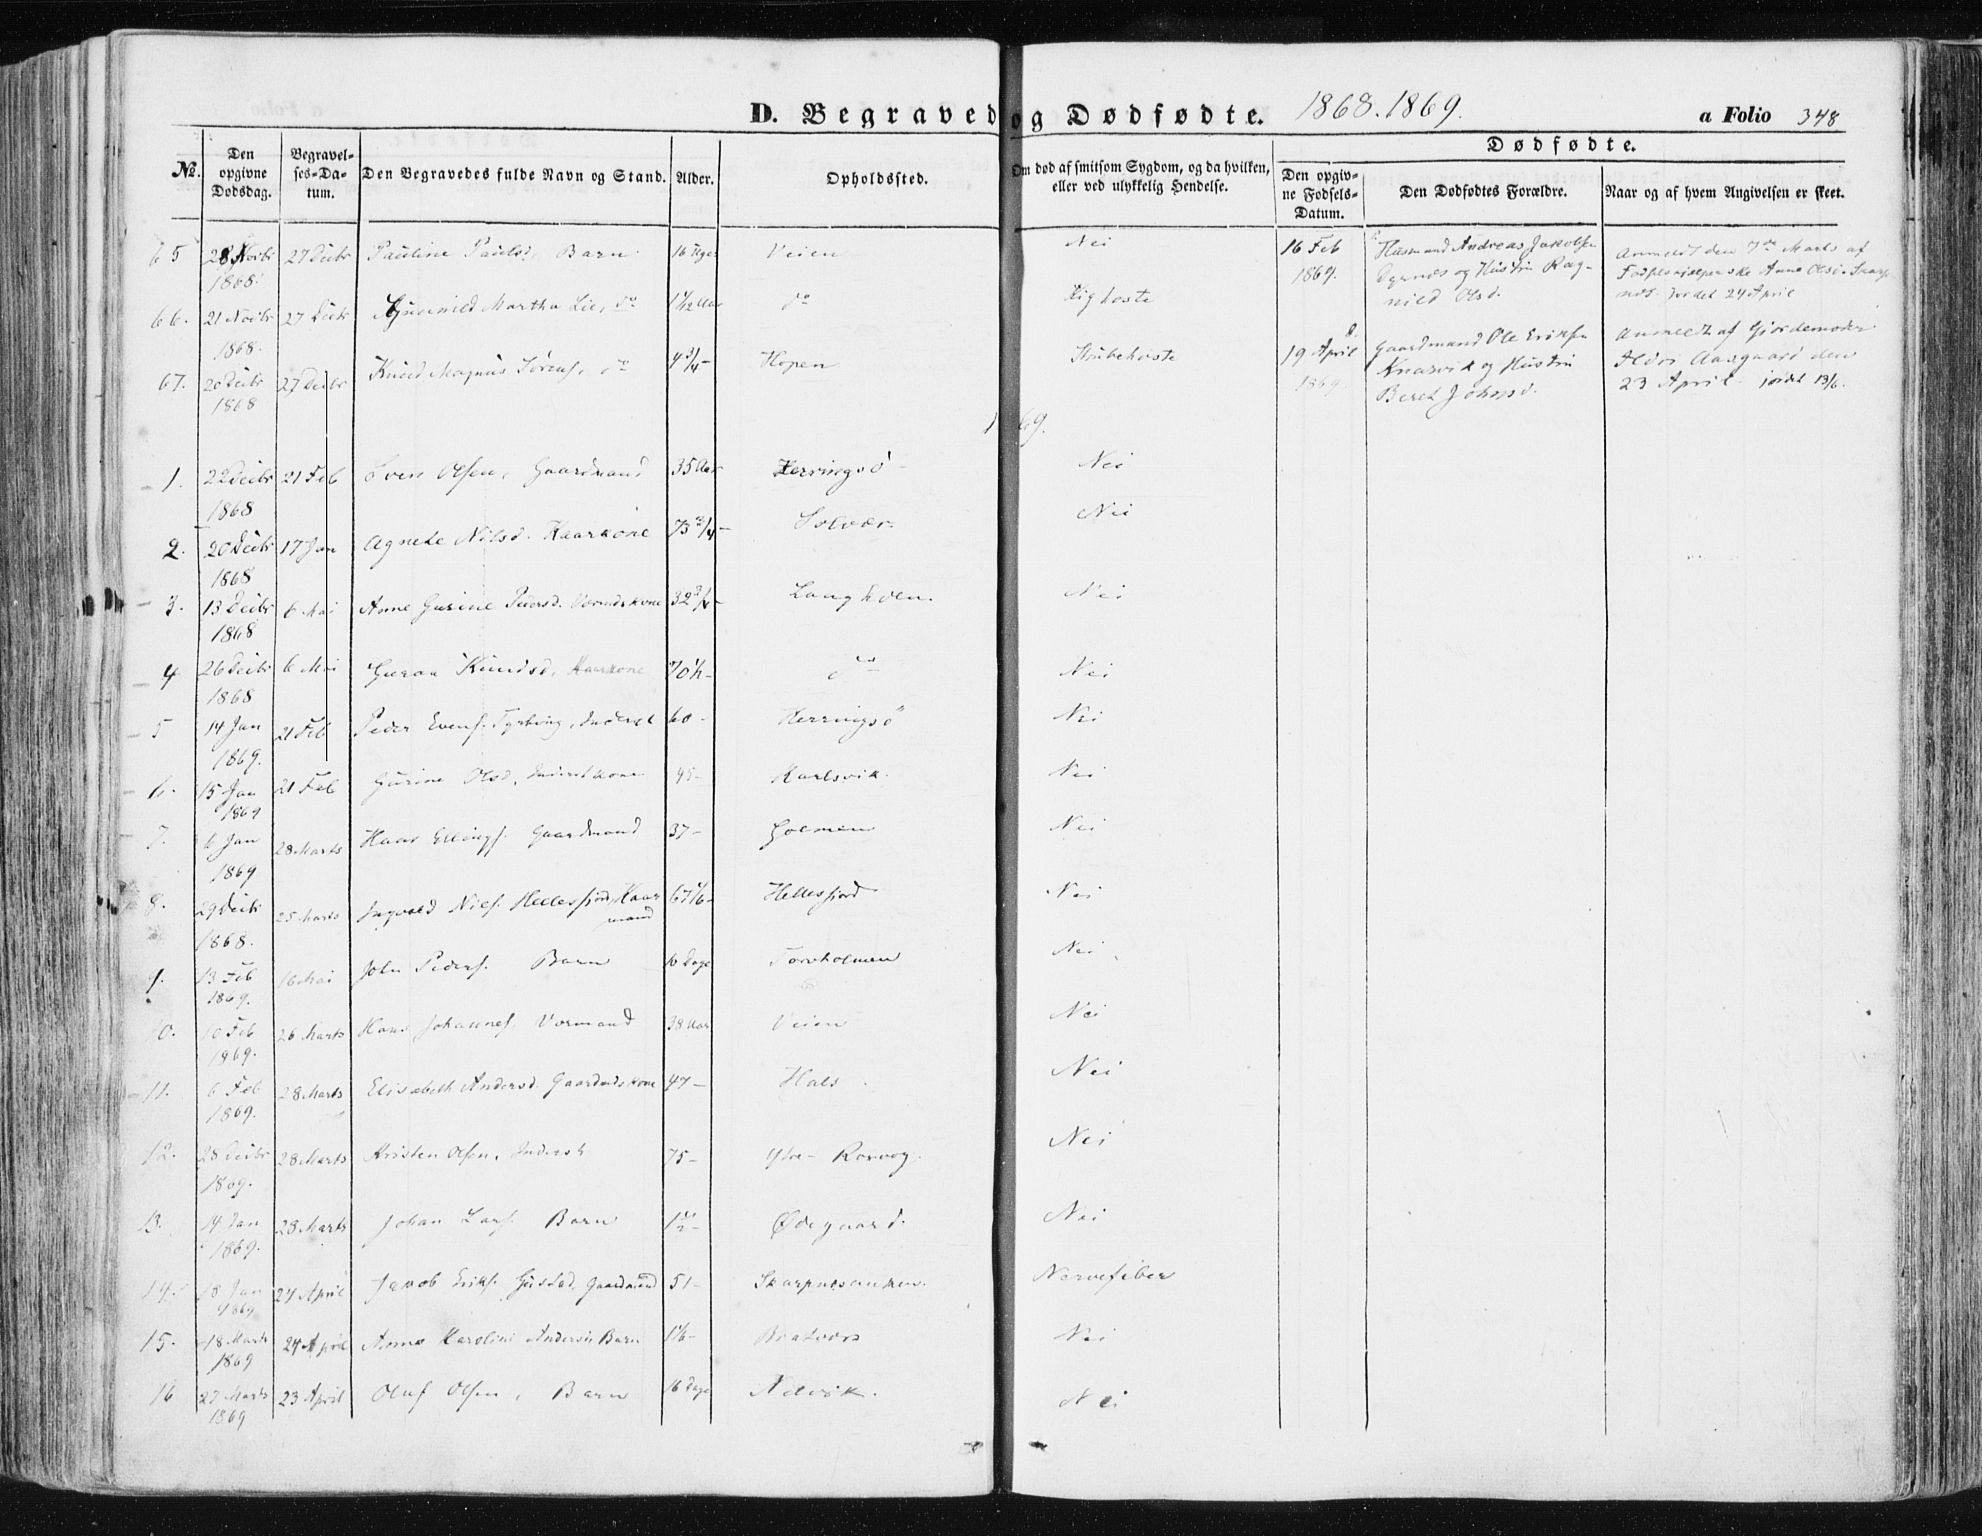 D. Begravede og Dødfødte. 1868.1869. a Folio 348
No. Den opgivne Dødsdag. Begravelses-Datum. Den Begravedes fulde Navn og Stand. Alder. Opholdssted. Om død af smitsom Sygdom, og da hvilken, eller ved ulykkelig Hendelse.
Dødfødte.
Den opgivne Fødsels-Datum. Den Dødfødtes Forældre. Naar og af hvem Angivelsen er skeet.
65 28 Novbr 1868. 27 Decbr Pauline Paulsd., Barn 16 Uger Veien Nei
66. 21 Novbr 1868. 27 Decbr Gunild Martha Lie, do 1 1/2 Aar do Kighoste
67. 20 Decbr 1868 27 Decbr Knud Magnus Sørens., do 4 3/4 - Hopen Strubehoste
16 Feb 1869. Husmand Andreas Jakobsen Dyrnes og Hustru Ragnild Olsd. Anmeldt den 7de Marts af Fødselshjelperske Anne Olsd. jordet 24 April
19 April 1869. Gaardmand Ole Eriksen Knarvik og Hustru Beret Johnsd. Anmeldt af Gjordemoder Aasgaard den 23 April jordet 13/6.
1869.
1. 22 Decbr 1868 21 Feb Sven Olsen, Gaardmand 35 Aar Herringsø Nei
2. 20 Decbr 1868 17 Jan Agnete Nilsd. Kaarkone 73 3/4 - Solvær Nei
3. 13 Decbr 1868 6 Mai Anne Gurine Pedersd. 32 3/4 - Langholen. Nei
4 26 Decbr 1868 6 Mai Guroa Knudsd, Kaarkone 70 1/2 - do Nei
5 14 Jan 1869. 21 Feb Peder Evens. Tyrhaug, Inderst 60 - Herringsø Nei
6. 15 Jan 1869 21 Feb Gurine Olsd, Inderstkone 45 - Karlsvik. Nei
7. 6 Jan 1869 28 Marts Haar Ellings. Gaardmand 37 - Holmen Nei
8. 29 Decbr 1868. 25 Marts Ingvald Nils. Hellesfjord, Kaarmand 67 1/6 - Hellesfjord Nei
9. 13 Feb 1869. 16 Mai John Peders. Barn 10 Dage Torvholmen Nei
10. 10 Feb 1869. 26 Marts Hans Johannes. 38 Aar Veien Nei
11. 6 Feb 1869. 28 Marts Elisabeth Andersd. Gaardmdskone 47 - Hals. Nei
12. 28 Decbr 1869. 28 Marts Kristen Olsen, Inderst 75 - Ytre- Rorvog. Nei
13. 14 Jan 1869. 28 Marts Johan Lars. Barn 1/2 - Ødegaard. Nei
14. 18 Jan 1869 24 April Jakob Eriks. Gustad, Gaardmand 51 - Skarpnesaunen. Nervefeber
15. 18 Marts 1869 24 April Anne Karoline Andersd. Barn 1/6 - Bratvær Nei
16 27 Marts 1869 23 April Oluf Olsen, Barn 16 Dage Nelvik. Nei